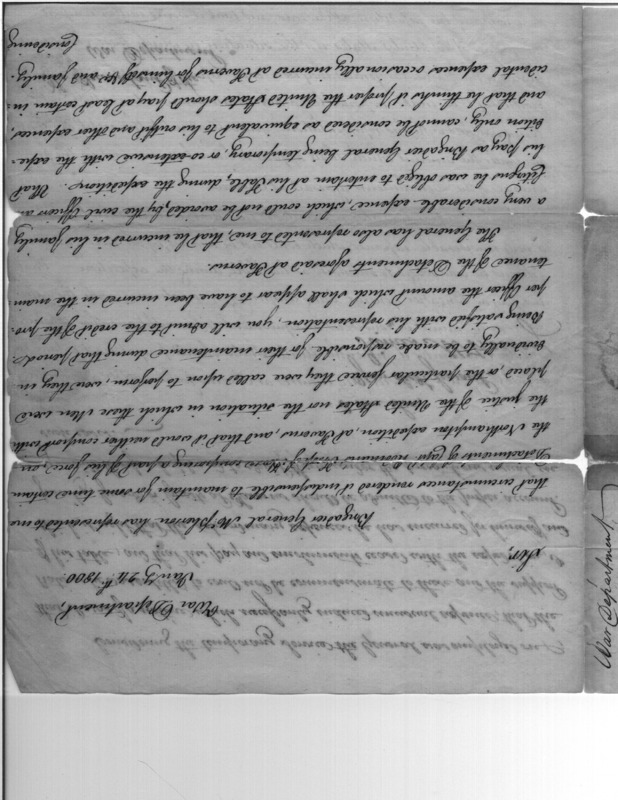 War Department,
Jany 24th 1800
Sir,
Brigadier General McPherson has represented to me
that circumstances rendered it indispensable to maintain for some time certain
Detachments of Troop of Horse composing a part of his force, on
the Northampton expedition, at Taverns, and, that it would neither comport with
the justice of the United States nor the situation in which these Men were
placed or the particular service they were called upon to perform, were they in-
dividually to be made responsible for their maintenance during that period.
Being satisfied with his representation, you will admit to the credit of the pro-
per Officer the amount which shall appear to have been incurred in the main-
tenance of the Detachments aforesaid at Taverns.
The General has also represented to me, that he incurred in his family
a very considerable expence which could not be avoided, by the civil Officers
he was obliged to entertain at his Table, during the expedition. That
his pay as Brigadier General being temporary, or co-extensive with the expe-
dition only, cannot be considered as equivalent to his outfit and other expences,
and that he thinks it proper the United States should pay at least certain in-
cidental expences occasionally incurred at Taverns for himself and family.
Considering
War Department